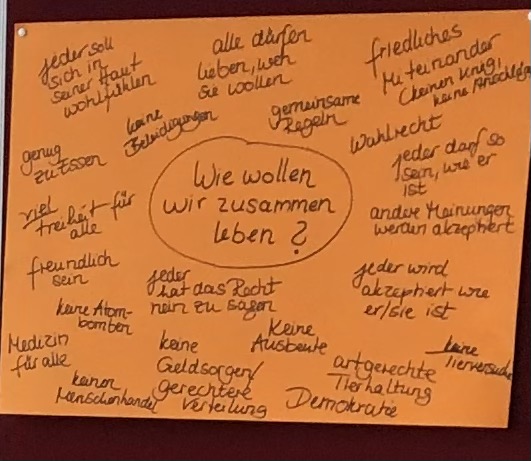 jeder soll
sich in
seiner Haut
wohlfühlen
alle dürfen
lieben, wen
sie wollen
friedliches
Miteinander
(keinen Krieg,
keine Anschläge
keine
Beleidigungen
gemeinsame
Regeln
Wahlrecht
genug
zu Essen
jeder darf so
sein, wie er
ist
Wie wollen
wir zusammen
leben?
viel
Freiheit für
alle
andere Meinungen
werden akzeptiert
freundlich
sein
jeder
hat das Recht
nein zu sagen
jeder wird
akzeptiert wie
er/sie ist
keine Atom-
bomben
Medizin
für alle
keine
Geldsorgen/
gerechtere
Verteilung
Keine
Ausbeute
artgerechte
Tierhaltung
keine
Tierversuche
keinen
Menschenhandel
Demokratie